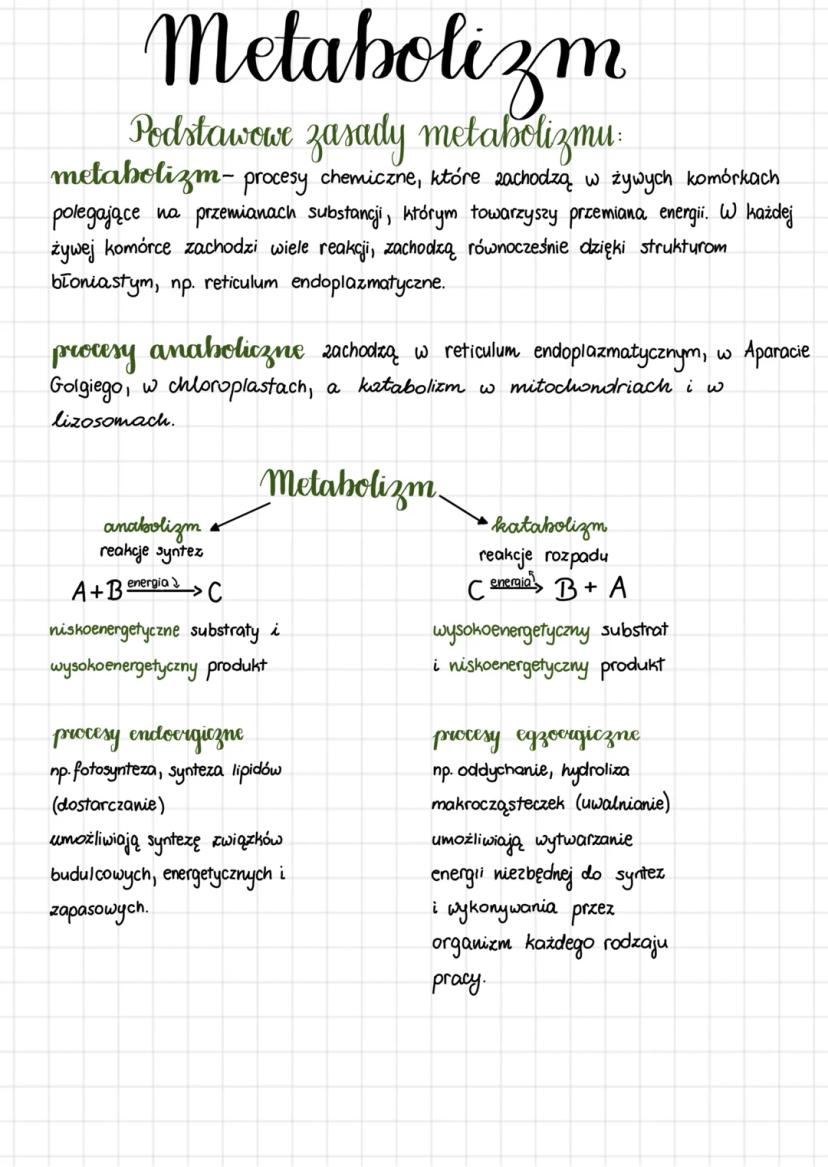 Metabolizm
Podstawowe zasady metabolizmu:
metabolizm - procesy chemiczne, które zachodzą w żywych komórkach
polegające na przemianach substancji, którym towarzyszy przemiana energii. W każdej
żywej komórce zachodzi wiele reakcji, zachodzą równocześnie dzięki strukturom
błoniastym, np. reticulum endoplazmatyczne.
procesy anaboliczne zachodzą w reticulum endoplazmatycznym, w Aparacie
Golgiego, w chloroplastach, a katabolizm w mitochondriach i w
lizosomach.
Metabolizm
anabolizm
reakcje syntez
A+B energia → C
niskoenergetyczne substraty i
wysokoenergetyczny produkt
procesy endoergiczne
np. fotosynteza, synteza lipidów
(dostarczanie)
umożliwiają syntezę związków
budulcowych, energetycznych i
zapasowych.
katabolizm
reakcje rozpadu
C energia → B + A
wysokoenergetyczny substrat
i niskoenergetyczny produkt
procesy egzoergiczne
np. oddychanie, hydroliza
makrocząsteczek (uwalnianie)
umożliwiają wytwarzanie
energii niezbędnej do syntez
i wykonywania przez
organizm każdego rodzaju
pracy.